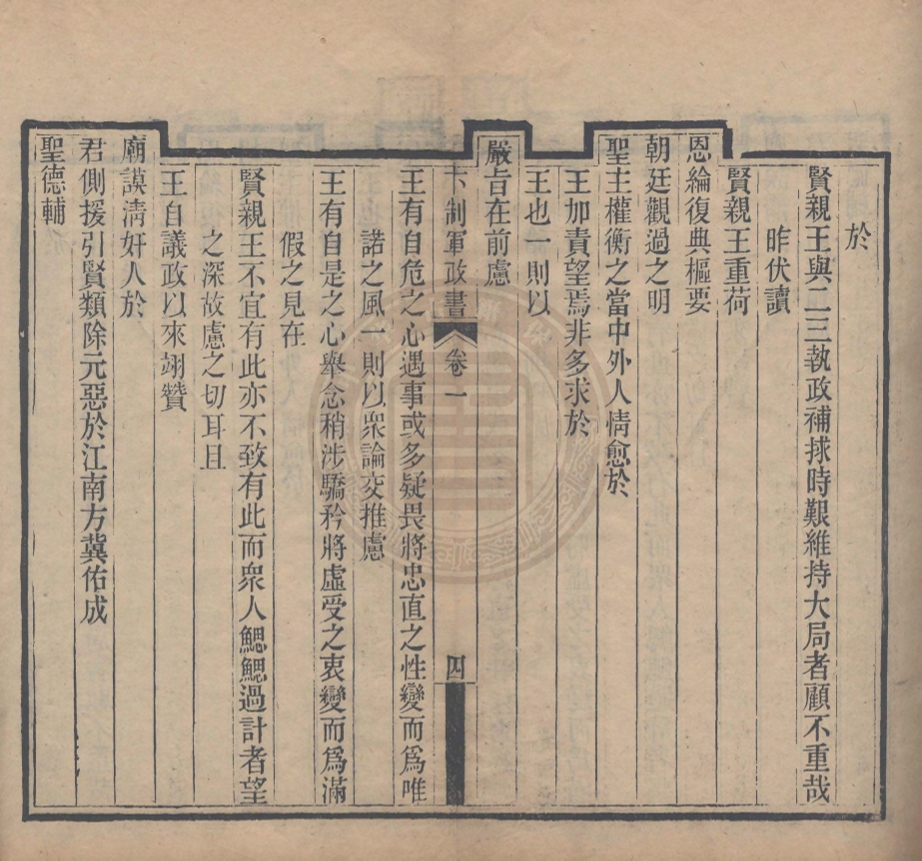 於
賢親王與二三執政補捄時艱維持大局者顧不重哉
昨伏讀
賢親王重荷
恩綸復典樞要
朝廷觀過之明
聖主權衡之當中外人情愈於
王加責望焉非多求於
王也一則以
嚴旨在前慮
卞制軍政書 卷一 四
王有自危之心遇事或多疑畏將忠直之性變而爲唯
諾之風一則以衆論交推慮
王有自是之心舉念稍涉驕矜將虛受之衷變而爲滿
假之見在
賢親王不宜有此亦不致有此而衆人鰓鰓過計者望
之深故慮之切耳且
王自議政以來翊贊
廟謨淸奸人於
君側援引賢類除元惡於江南方冀佑成
聖德輔